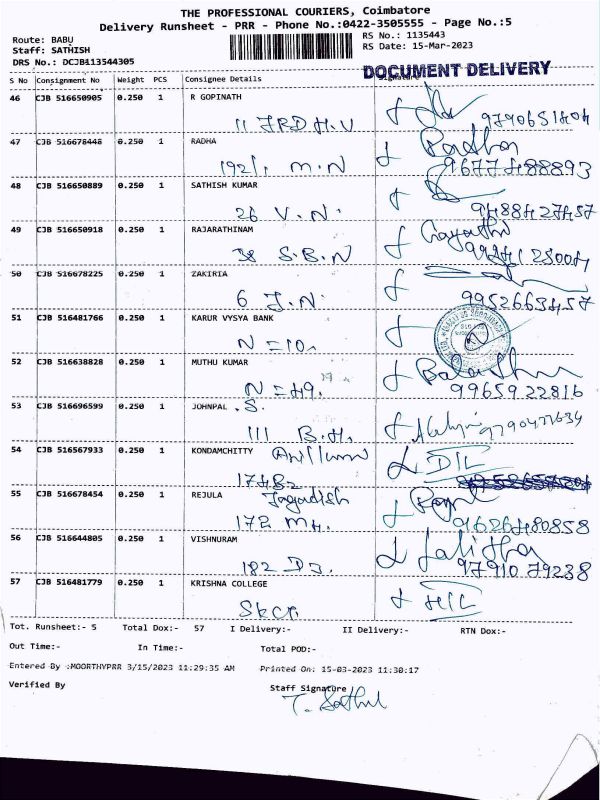 THE PROFESSIONAL COURIERS, Coimbatore
Delivery Runsheet - PRR - Phone No.:0422-3505555 - Page No.:5
Route: BABU
RS No.: 1135443
Staff: SATHISH
RS Date: 15-Mar-2023
DRS No.: DCJB113544305
DOCUMENT DELIVERY
S No Consignment No Weight PCS Consignee Details Signature
46 CJB 516650905 0.250 1 R GOPINATH
47 CJB 516678448 0.250 1 RADHA Radha
192/1 M.N 9677488893
48 CJB 516650889 0.250 1 SATHISH KUMAR
26 V.N. 9488427457
49 CJB 516650918 0.250 1 RAJARATHINAM Gayathri
38 S.B.N
50 CJB 516678225 0.250 1 ZAKIRIA
6 J.N. 9952663457
51 CJB 516481766 0.250 1 KARUR VYSYA BANK
N=10.
52 CJB 516638828 0.250 1 MUTHU KUMAR
N=49. 9965922816
53 CJB 516696599 0.250 1 JOHNPAL .S.
111 B.H.
54 CJB 516567933 0.250 1 KONDAMCHITTY DIL
55 CJB 516678454 0.250 1 REJULA Jagadish
172 MH. 9626480858
56 CJB 516644805 0.250 1 VISHNURAM Lalitha
182 DJ. 9791079238
57 CJB 516481779 0.250 1 KRISHNA COLLEGE
Tot. Runsheet:- 5 Total Dox:- 57 I Delivery:- II Delivery:- RTN Dox:-
Out Time:- In Time:- Total POD:-
Entered By :MOORTHYPRR 3/15/2023 11:29:35 AM Printed On: 15-03-2023 11:30:17
Verified By Staff Signature